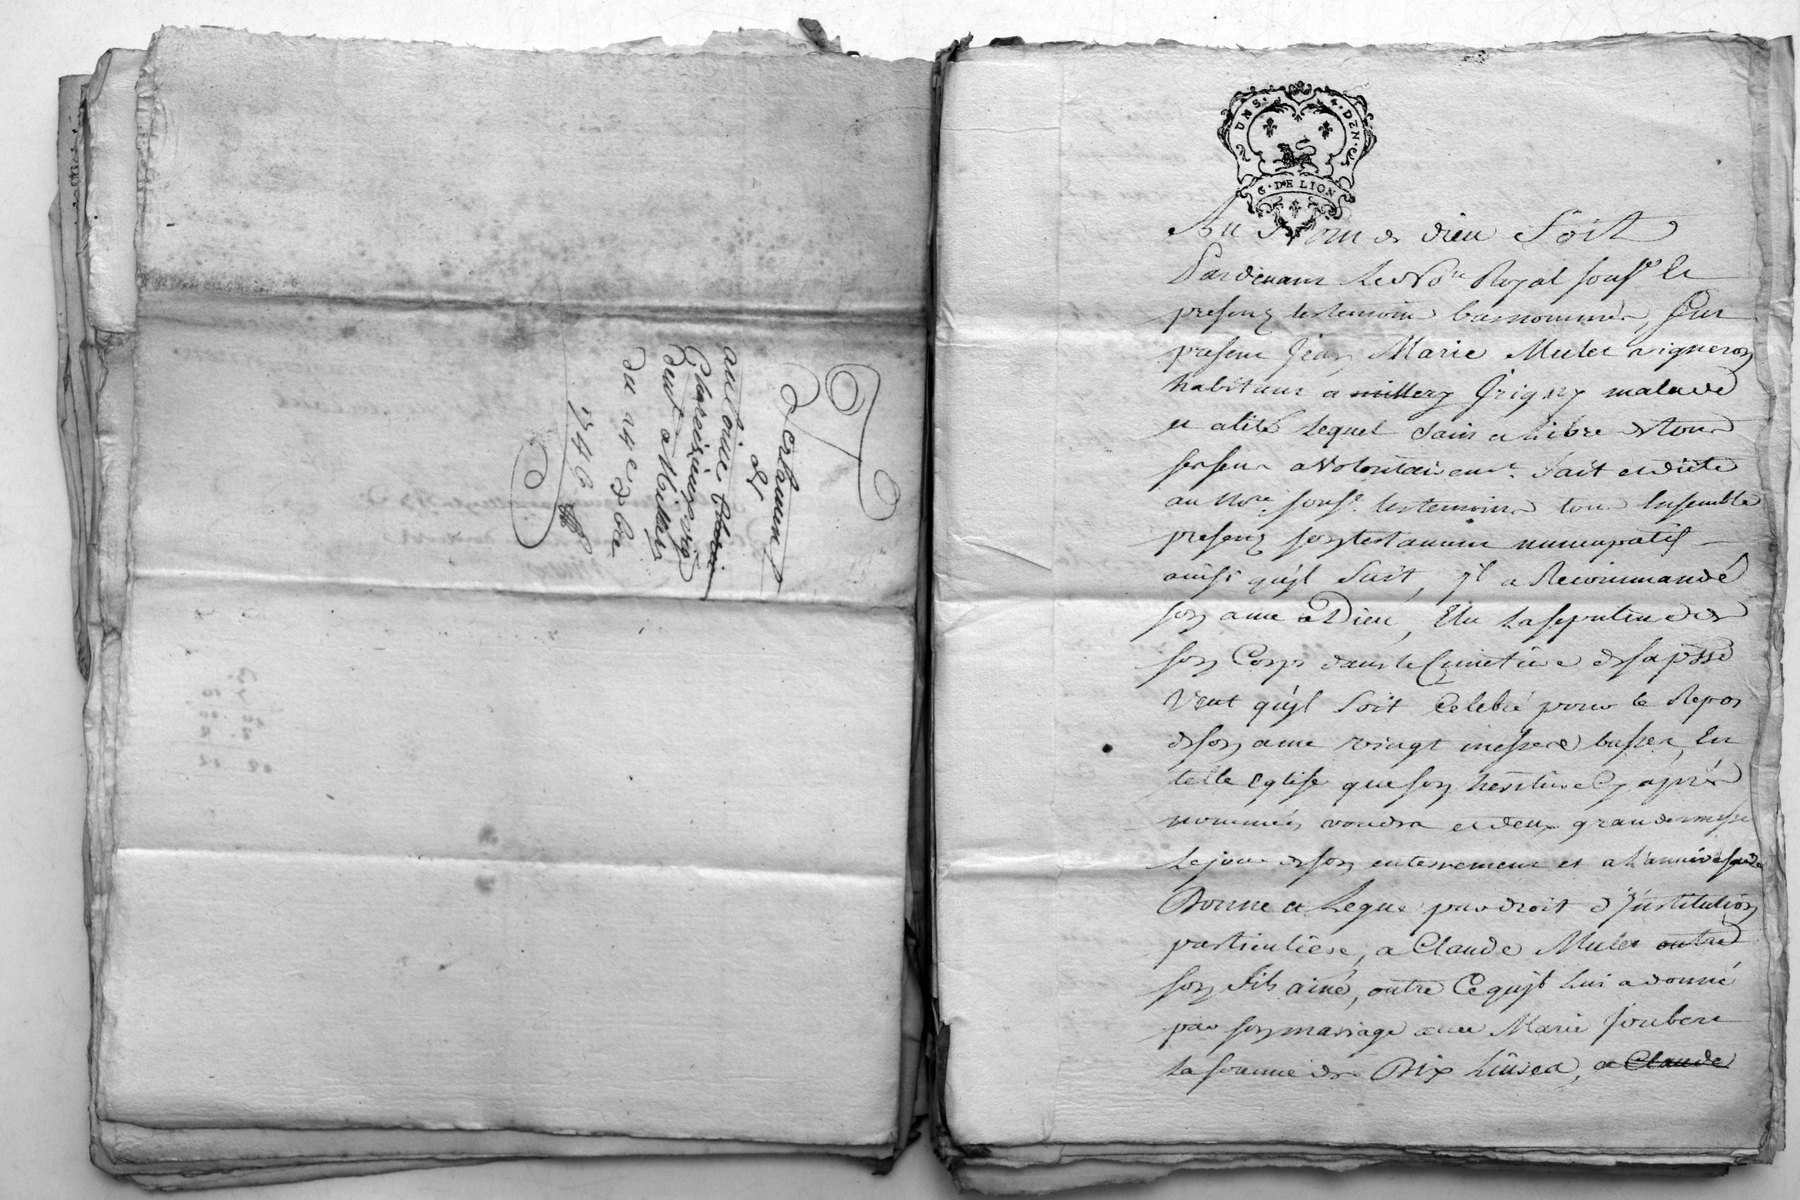 Testament
de
antoine
du 24e xbre
1746
UN S. 4. DEN.
G. DE LION
Au Nom de dieu Soit
Pardevant le No.re Royal sous.é Et
presens les temoins bas nommés, fut
present Jean Marie Mulet vigneron
habitant a millery Grigny malade
et alité Lequel Sain et Libre de tous
ses sens a Volontairemt. fait et dicté
au No.re sous.é les temoins tous Ensemble
presens son testament nuncupatif
ainsi qu'jl Suit, jl a Recommandé
son ame a Dieu, Elu La sepulture de
son Corps dans le Cimetiere de sa psse
Veut qu'jl Soit Celebré pour le Repos
de son ame vingt messes basses, En
telle Eglise que son heritiere Cy après
nommée voudra et deux grandes messes
Le jour de son enterrement et a l'anniversaire
Donne et Legue par droit d'Jnstitution
particuliere, a Claude Mulet outre
son fils ainé, outre Ce qu'jl Lui a donné
par son mariage avec Marie Joubert
la somme de Dix Livres, a Claude